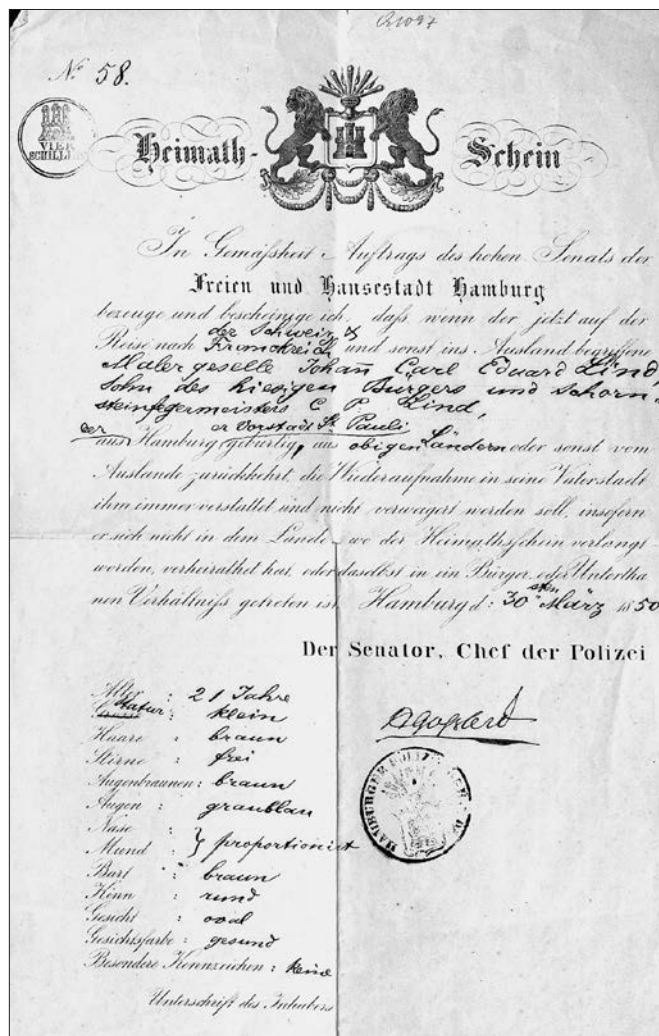 No 58.
VIER
SCHILLING
Heimath-Schein
In Gemäßheit Auftrags des hohen Senats der
Freien und Hansestadt Hamburg
bezeuge und bescheinige ich, daß, wenn der jetzt auf der
der Schweiz &
Reise nach Franckreich und sonst ins Ausland begriffene
Malergeselle Johan Carl Eduard Lind,
Sohn des hiesigen Bürgers und Schorn-
steinfegermeisters C. P. Lind,
er Vorstadt St. Pauli
aus Hamburg gebürtig, aus obigen Ländern oder sonst vom
Auslande zurückkehrt, die Wiederaufnahme in seine Vaterstadt
ihm immer verstattet und nicht verweigert werden soll, insofern
er sich nicht in dem Lande, wo der Heimathsschein verlangt
worden, verheirathet hat, oder daselbst in ein Bürger- oder Untertha
nen Verhältniß getreten ist. Hamburg d: 30sten März 1850
Der Senator, Chef der Polizei
Alter : 21 Jahre
Statur : klein
Haare : braun
Stirne : frei
Augenbraunen : braun
Augen : graublau
Nase :
Mund : } proportionirt
Bart : braun
Kinn : rund
Gesicht : oval
Gesichtsfarbe : gesund
Besondere Kennzeichen : keine
Unterschrift des Inhabers
HAMBURGER POLIZEI